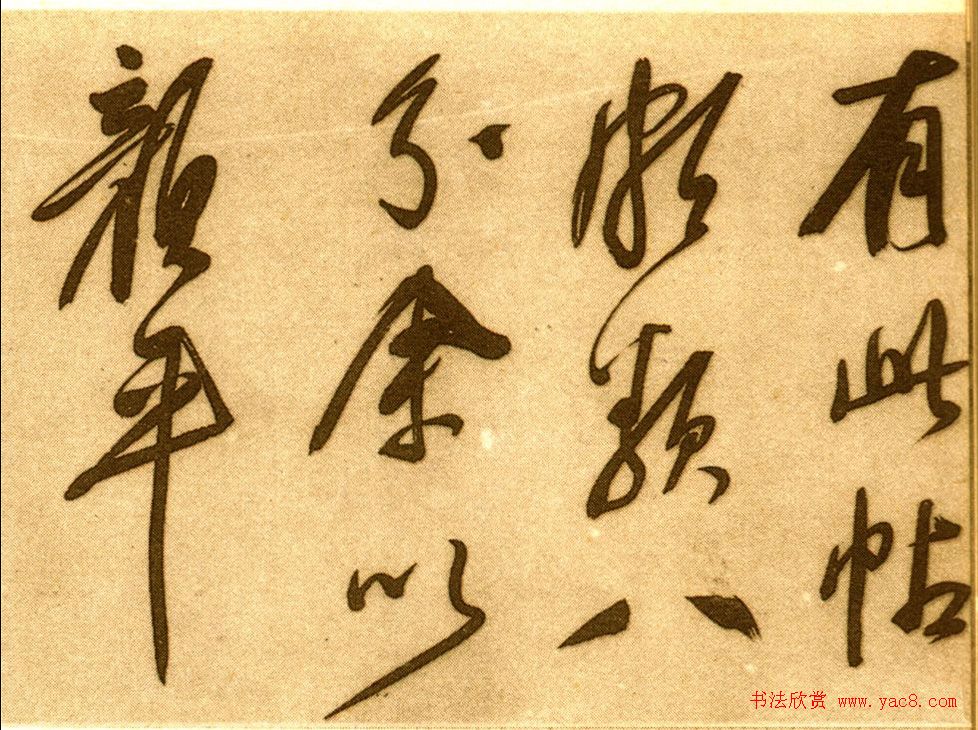 有此帖
頗類八
分余以
親年
书法欣赏 www.yac8.com